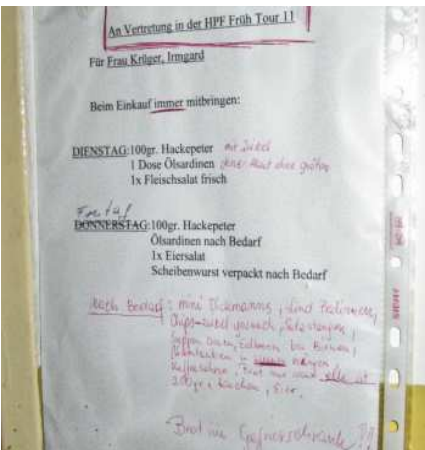 An Vertretung in der HPF Früh Tour 11
Für Frau Krüger, Irmgard
Beim Einkauf immer mitbringen:
DIENSTAG:100gr. Hackepeter mit Zwiebel
1 Dose Ölsardinen ohne Haut ohne gräten
1x Fleischsalat frisch
Freitag
DONNERSTAG:100gr. Hackepeter
Ölsardinen nach Bedarf
1x Eiersalat
Scheibenwurst verpackt nach Bedarf
nach Bedarf: mini Dickmanns,
Chips, Salzstangen,
Birnen,
Brot nur wenn alle ist
200gr, Kuchen, Eier.
Brot im Gefrierschrank!!